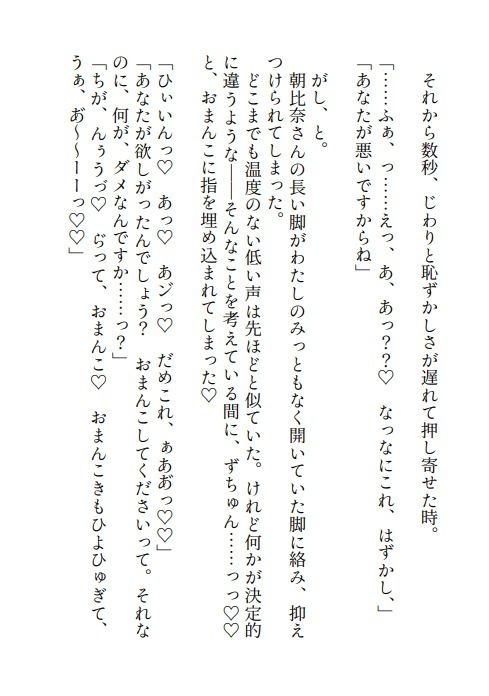 それから数秒、じわりと恥ずかしさが遅れて押し寄せた時。
「……ふぁ、っ……えっ、あ、あっ？？♡　なっなにこれ、はずかし、」
「あなたが悪いですからね」
がし、と。
朝比奈さんの長い脚がわたしのみっともなく開いていた脚に絡み、抑え
つけられてしまった。
どこまでも温度のない低い声は先ほどと似ていた。けれど何かが決定的
に違うような――そんなことを考えている間に、ずちゅん……っっ♡♡
と、おまんこに指を埋め込まれてしまった♡
「ひぃいんっ♡　あっ♡　あンっ♡　だめこれ、ぁあ゛っ♡♡」
「あなたが欲しがったんでしょう？　おまんこしてくださいって。それな
のに、何が、ダメなんですか……っ？」
「ちが、んぅうづ♡　ら゛って、おまんこ♡　おまんこきもひよひゅぎて、
うぁ、あ゛～～ーーっ♡♡」